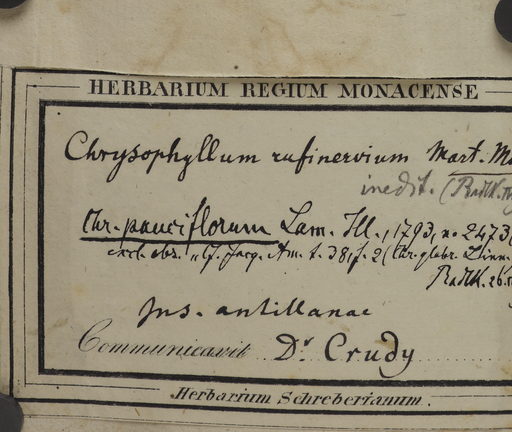 HERBARIUM REGIUM MONACENSE
Chrysophyllum rufinervium Mart. M
inedit. (Radlk.
Chr. pauciflorum Lam. Ill., 1793, n. 2473 (
excl. obs. "Cf. Jacq. Am. t. 38, f. 2 (Chr. glabr. Linn.
Radlk. 26.
Ins. antillanae
Communicavit Dr Crudy
Herbarium Schreberianum.